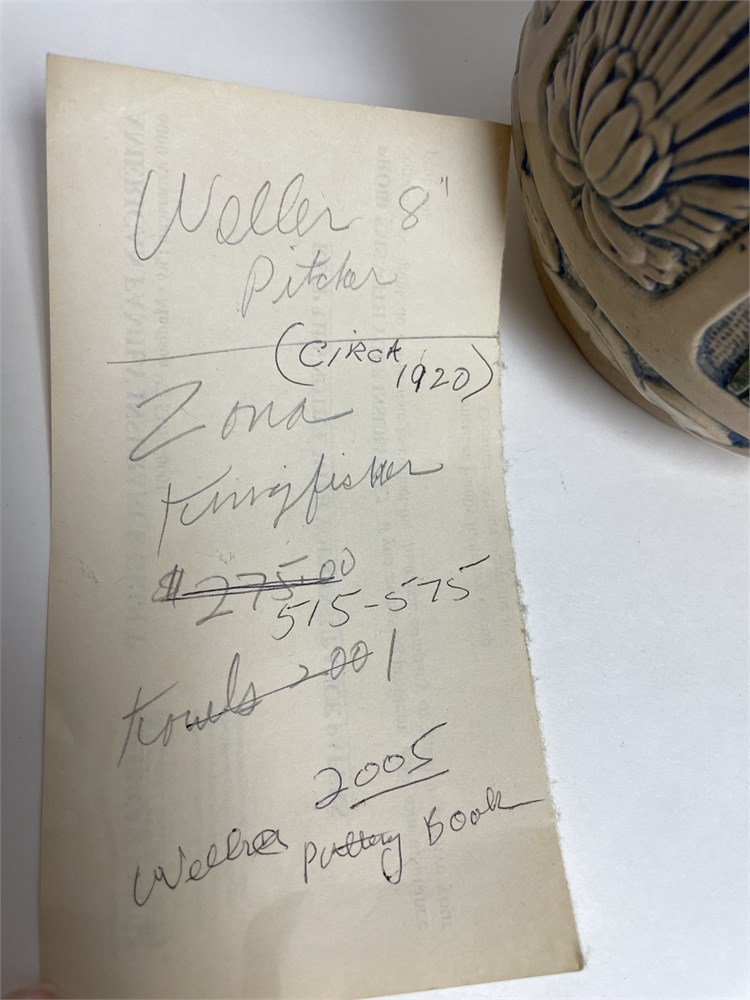 Weller 8"
Pitcher
(CIRCA
1920)
Zona
Kingfisher
$275.00
515-575
Kovels 2001
2005
Weller Pottery Book